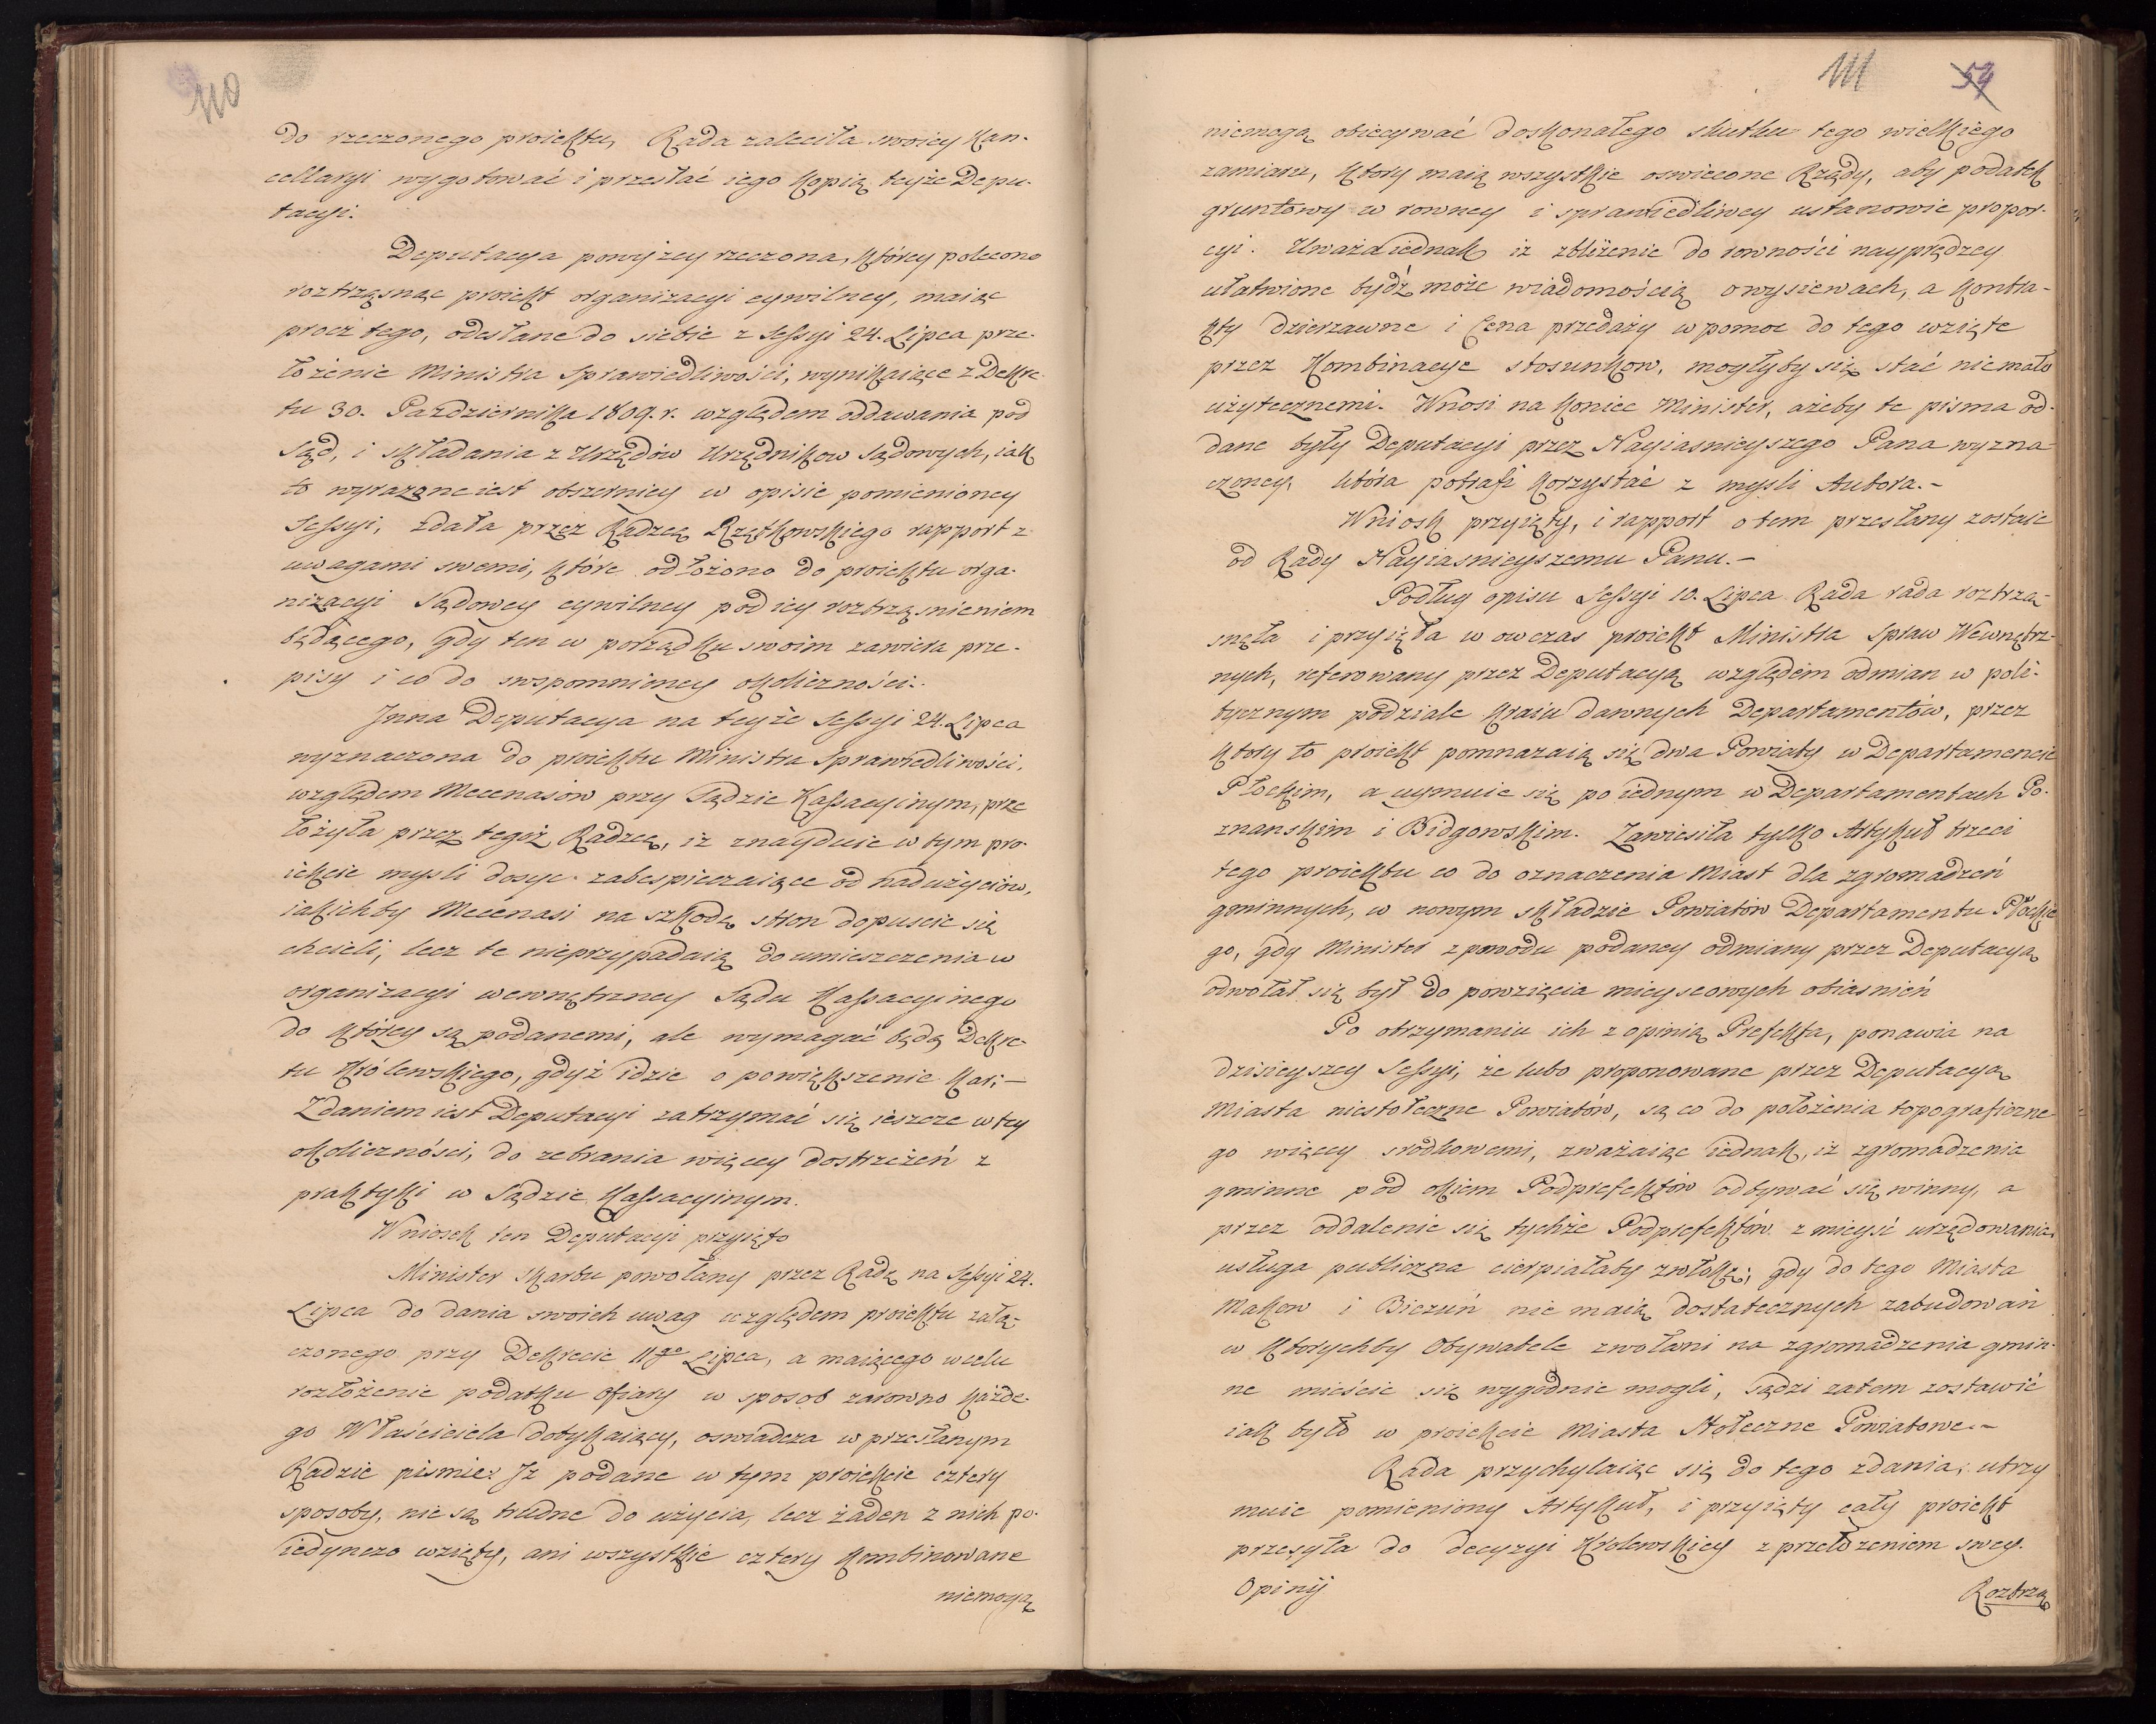 110
do rzeczonego proiektu, Rada zaleciła swoiey Kan-
cellaryi wygotować i przesłać iego kopią teyże Depu-
tacyi.
Deputacya powyżey rzeczona, którey polecono
roztrząsnąc proiekt organizacyi cywilney, maiąc
procz tego, odesłane do siebie z Sessyi 24. Lipca prze-
łożenie Ministra Sprawiedliwości, wynikaiące z Dekre-
tu 30. Pazdziernika 1809. r. względem oddawania pod
Sąd, i składania z Urzędów Urzędnikow Sądowych, iak
to wyrażone iest obszerniey w opisie pomienioney
Sessyi, zdała przez Radzcę Rzętkowskiego rapport z
uwagami swemi, które odłożono do proiektu orga-
nizacyi Sądowey cywilney pod iey roztrząsnieniem
będącego, gdy ten w porządku swoim zawiera prze-
pisy i co do wspomnioney okoliczności.
Jnna Deputacya na teyże Sessyi 24. Lipca
wyznaczona do proiektu Ministra Sprawiedliwości,
względem Mecenasów przy Sądzie Kassacyinym, prze
łożyła przez tegoż Radzcę, iż znayduie w tym pro-
iekcie mysli dosyc zabespieczaiące od nadużyciów,
iakichby Mecenasi na szkodę stron dopuscić się
chcieli, lecz te nieprzypadaią do umieszczenia w
organizacyi wewnętrzney Sądu Kassacyinego
do którey są podanemi, ale wymagać będą Dekre-
tu Królewskiego, gdyż idzie o powiększenie kar; —
Zdaniem iest Deputacyi zatrzymać się ieszcze w tey
okoliczności, do zebrania więcey dostrzeżeń z
praktyki w Sądzie Kassacyinym.
Wniosek ten Deputacyi przyięto
Minister Skarbu powołany przez Radę na Sessyi 24.
Lipca do dania swoich uwag względem proiektu załą-
czonego przy Dekrecie 11go Lipca, a maiącego w celu
rozłożenie podatku Ofiary w sposob zarowno każde-
go Właściciela dotykaiący, oswiadcza w przesłanym
Radzie pismie: Jż podane w tym proiekcie cztery
sposoby, nie są trudne do użycia, lecz żaden z nich po-
iedynczo wzięty, ani wszystkie cztery kombinowane
niemogą
111 54
niemogą obiecywać doskonałego skutku tego wielkiego
zamiaru, ktory maią wszystkie oswiecone Rządy, aby podatek
gruntowy w rowney i sprawiedliwey ustanowic propor-
cyi. Uważa iednak iż zbliżenie do rowności nayprędzey
ułatwione bydź może wiadomością o wysiewach, a kontra-
kty dzierzawne i Cena przedaży w pomoc do tego wzięte
przez Kombinacye stosunkow, mogłyby się stać niemało
użytecznemi. Wnosi na koniec Minister, ażeby te pisma od-
dane były Deputacyi przez Nayiasnieyszego Pana wyzna-
czoney, która potrafi korzystać z mysli Autora. —
Wniosk przyięty, i rapport o tem przesłany zostaie
od Rady Nayiasnieyszemu Panu. —
Podług opisu Sessyi 10. Lipca Rada rada roztrzą-
snęła i przyięła w owczas proiekt Ministra Spraw Wewnętrz-
nych, referowany przez Deputacyą względem odmian w poli-
tycznym podziale kraiu dawnych Departamentów, przez
ktory to proiekt pomnazaią się dwa Powiaty w Departamencie
Płockim, a uymuie się po iednym w Departamentach Po-
znanskim i Bidgowskim. Zawiesiła tylko Artykuł trzeci
tego proiektu co do oznaczenia Miast dla zgromadzeń
gminnych, w nowym składzie Powiatów Departamentu Płockie
go, gdy Minister z powodu podaney odmiany przez Deputacyą
odwołał się był do powzięcia mieyscowych obiasnień
Po otrzymaniu ich z opinią Prefekta, ponawia na
dzisieyszey Sessyi, że lubo proponowane przez Deputacyą
Miasta niestołeczne Powiatów, są co do położenia topograficzne
go więcey srodkowemi, zważaiąc iednak, iż zgromadzenia
gminne pod okiem Podprefektów odbywać się winny, a
przez oddalenie się tychże Podprefektów z mieysc urzędowania,
usługa publiczna cierpiałaby zwłokę; gdy do tego Miasta
Makow i Bieżuń nie maią dostatecznych zabudowań
w ktorychby Obywatele zwołani na zgromadzenia gmin-
ne mieścić się wygodnie mogli, sądzi zatem zostawić
iak było w proiekcie Miasta Stołeczne Powiatowe. —
Rada przychylaiąc się do tego zdania, utrzy
muie pomieniony Artykuł, i przyięty cały proiekt
przesyła do decyzyi Królewskiey z przełożeniem swey
Opinij
Roztrzą